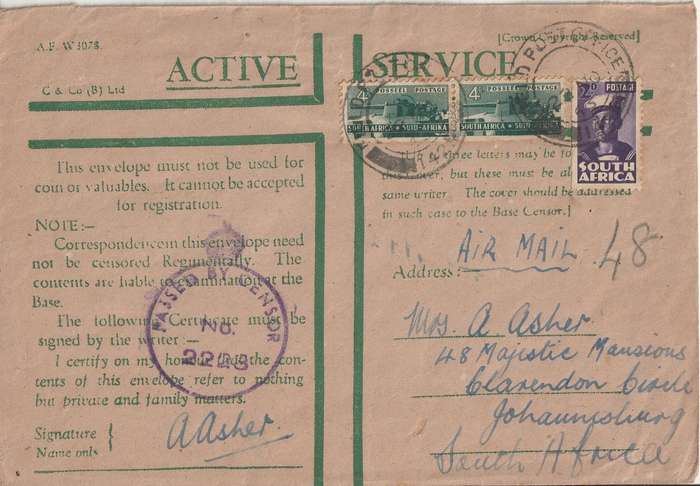 A.F. W3078.
[Crown Copyright Reserved]
ACTIVE SERVICE
C & Co (B) Ltd
4 POSSEEL POSTAGE
SOUTH AFRICA SUID-AFRIKA
4 POSSEEL POSTAGE
SOUTH AFRICA SUID-AFRIKA
POSTAGE
SOUTH
AFRICA
POST OFFICE
42
This envelope must not be used for
coin or valuables. It cannot be accepted
for registration.
NOTE:—
Correspondence in this envelope need
not be censored Regimentally. The
contents are liable to examination at the
Base.
The following Certificate must be
signed by the writer:—
I certify on my honour that the con-
tents of this envelope refer to nothing
but private and family matters.
Signature
Name only
A Asher.
PASSED BY CENSOR
No.
2243
three letters may be
this cover, but these must be
same writer. The cover should be addressed
in such case to the Base Censor.]
AIR MAIL
48
Address:
Mrs. A Asher.
48 Majestic Mansions
Clarendon Circle
Johannesburg
South Africa